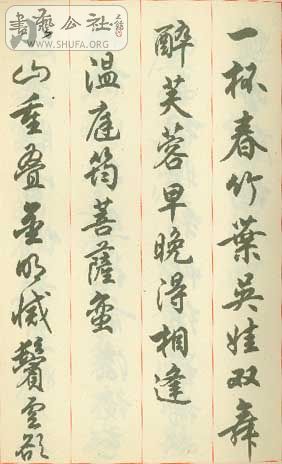 一杯春竹葉吴娃双舞
醉芙蓉早晚得相逢
温庭筠菩薩蛮
山重叠金明滅鬢雲欲
書藝公社
WWW.SHUFA.ORG